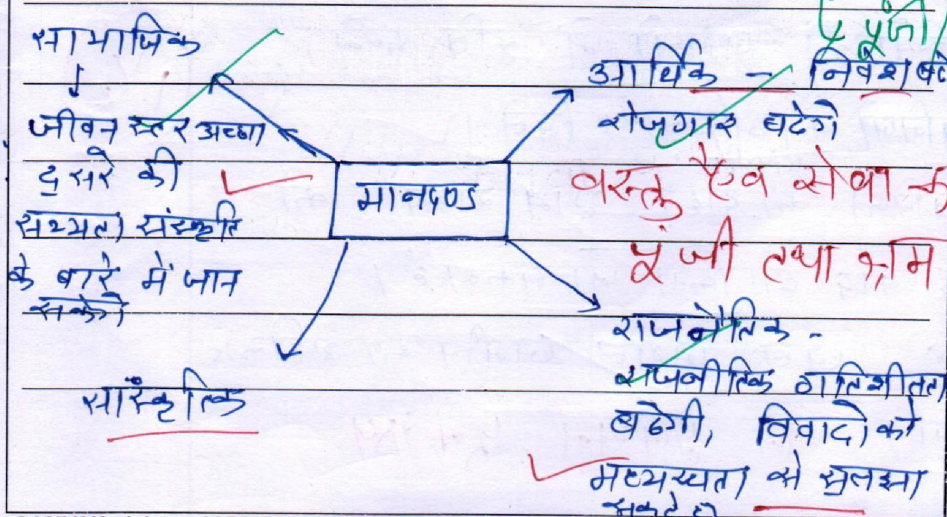 सामाजिक
↓
जीवन स्तर अच्छा
दुसरे की
सभ्यता संस्कृति
के बारे में जान
सकेगे
मानदण्ड
सांस्कृतिक
पूंजी
आर्थिक - निवेश बढे
रोजगार बढेगे
वस्तु एंव सेवा
पूंजी तथा श्रम
राजनैतिक -
राजनीतिक गतिशीलता
बढेगी, विवादो को
मध्यस्थता से सुलझा
सकते है